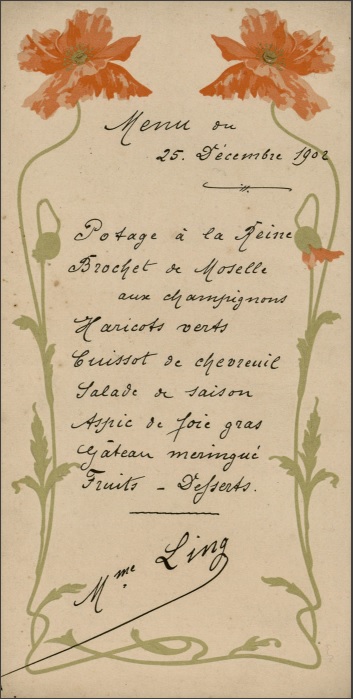 Menu du
25. Décembre 1902
Potage à la Reine
Brochet de Moselle
aux champignons
Haricots verts
Cuissot de chevreuil
Salade de saison
Aspic de foie gras
Gâteau meringué
Fruits - Desserts.
Mme Ling